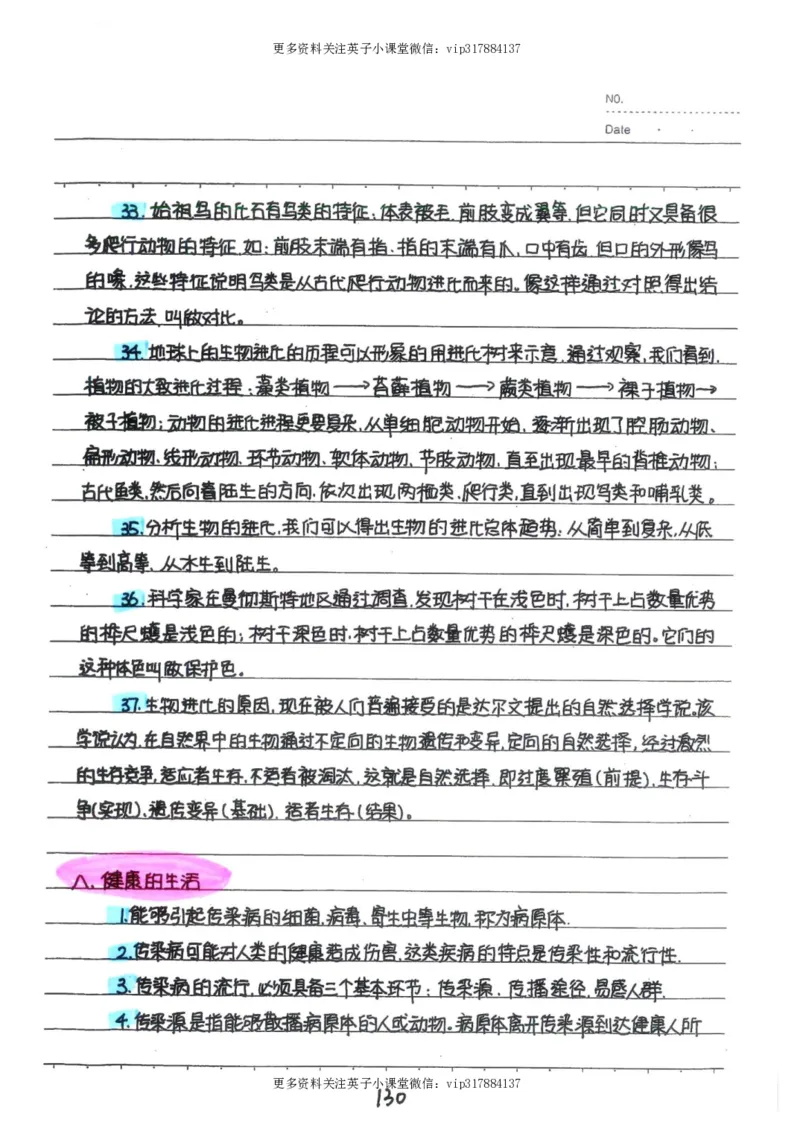 更多资料关注英子小课堂微信：vip317884137
NO.
Date
33. 始祖鸟的化石有鸟类的特征：体表被毛，前肢变成翼等，但它同时又具备很
多爬行动物的特征，如：前肢末端有指、指的末端有爪，口中有齿，但口的外形像鸟
的喙，这些特征说明鸟类是从古代爬行动物进化而来的。像这样通过对照得出结
论的方法，叫做对比。
34. 地球上的生物进化的历程可以形象的用进化树来示意，通过观察，我们看到，
植物的大致进化过程：藻类植物→苔藓植物→蕨类植物→裸子植物→
被子植物；动物的进化进程更要复杂，从单细胞动物开始，逐渐出现了腔肠动物、
扁形动物、线形动物、环节动物、软体动物、节肢动物，直至出现最早的脊椎动物：
古代鱼类，然后向着陆生的方向，依次出现两栖类、爬行类，直到出现鸟类和哺乳类。
35. 分析生物的进化，我们可以得出生物的进化总体趋势：从简单到复杂，从低
等到高等，从水生到陆生。
36. 科学家在曼彻斯特地区通过调查，发现树干在浅色时，树干上占数量优势
的桦尺蠖是浅色的；树干深色时，树干上占数量优势的桦尺蠖是深色的。它们的
这种体色叫做保护色。
37. 生物进化的原因，现在被人们普遍接受的是达尔文提出的自然选择学说。该
学说认为，在自然界中的生物通过不定向的生物遗传和变异，定向的自然选择，经过激烈
的生存竞争，适应者生存，不适者被淘汰，这就是自然选择，即过度繁殖（前提），生存斗
争（实现），遗传变异（基础），适者生存（结果）。
八、健康的生活
1. 能够引起传染病的细菌，病毒、寄生虫等生物，称为病原体.
2. 传染病可能对人类的健康造成伤害，这类疾病的特点是传染性和流行性.
3. 传染病的流行，必须具备三个基本环节：传染源、传播途径，易感人群.
4. 传染源是指能够散播病原体的人或动物。病原体离开传染源到达健康人所
更多资料关注英子小课堂微信：vip317884137
130